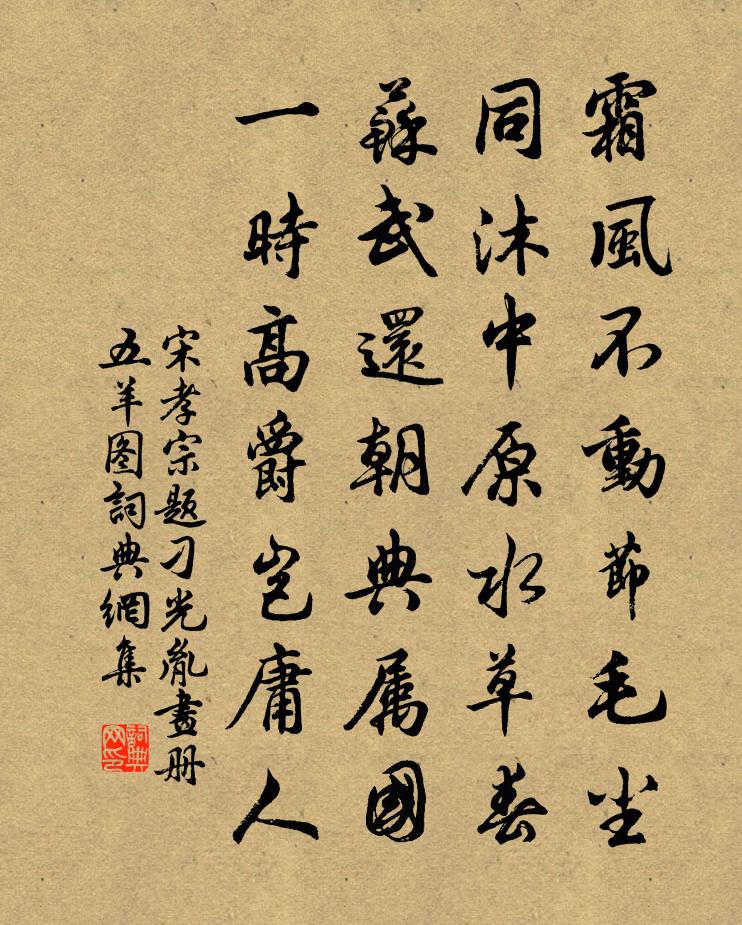 霜風不動節毛尘
同沐中原水草春
蘇武還朝典属國
一時高爵岂庸人
宋孝宗题刁光胤畫册
五羊图詞典網集
詞典
网印